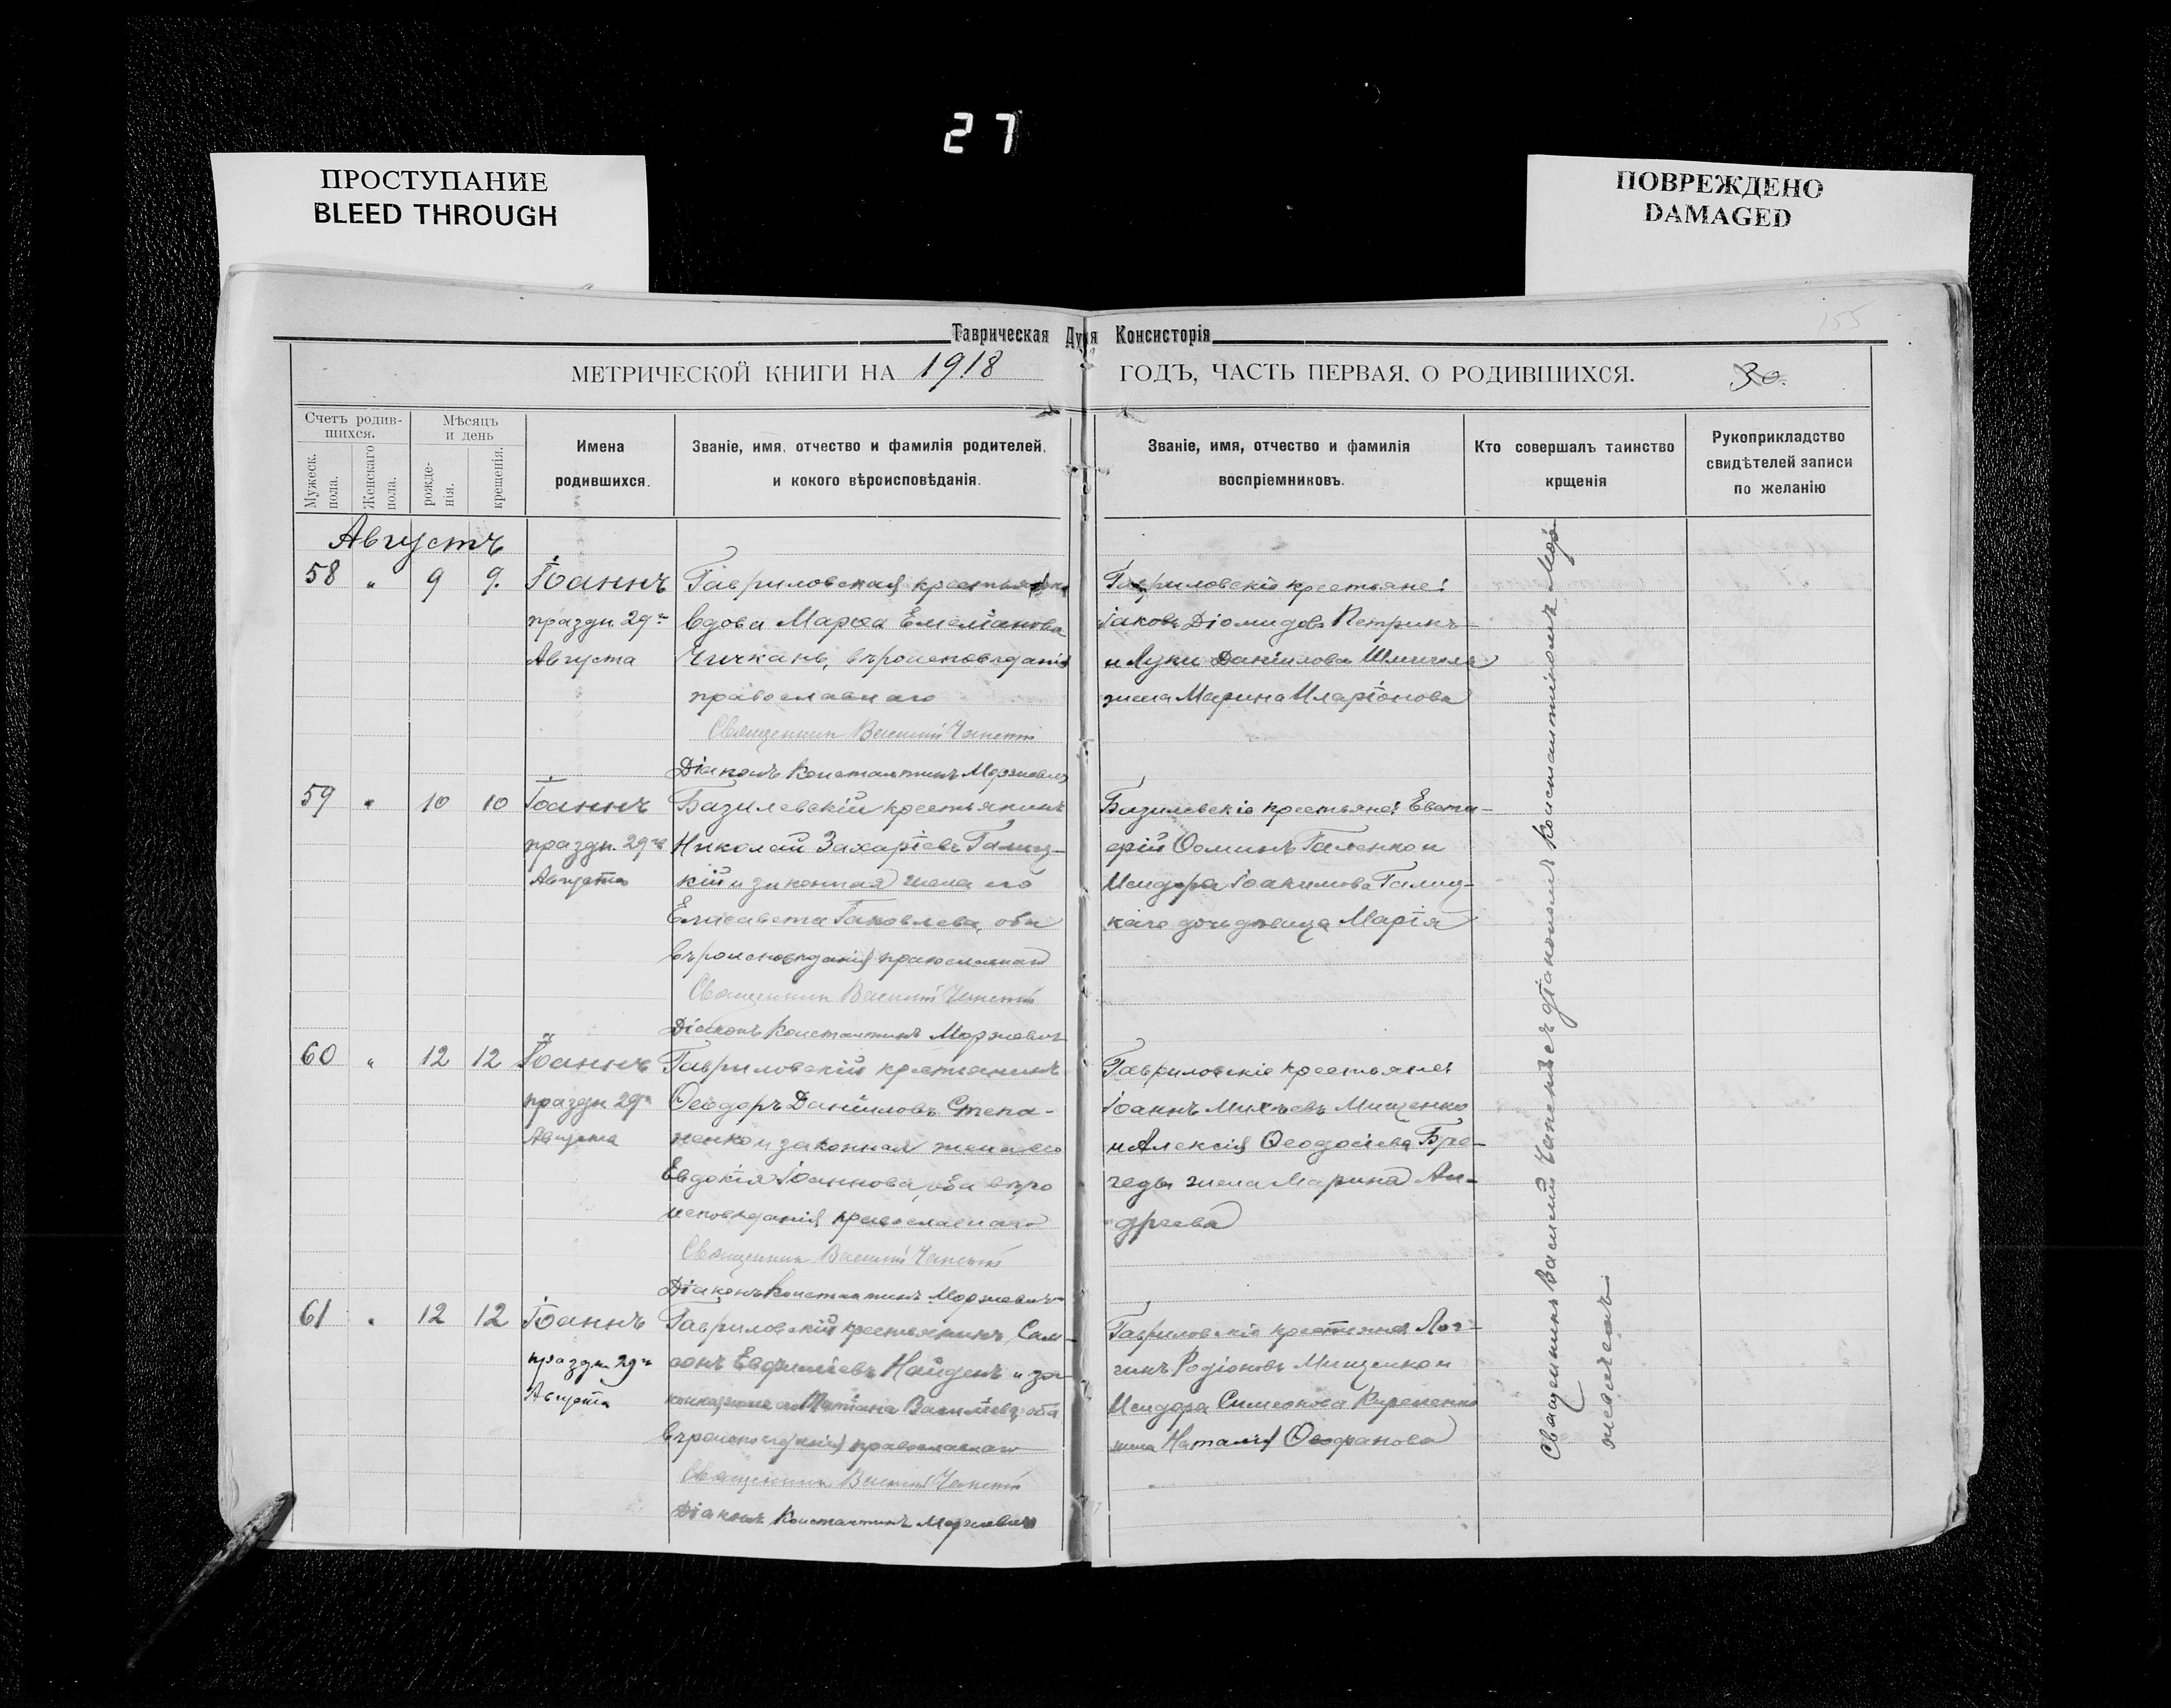 27
ПРОСТУПАНИЕ
BLEED THROUGH
ПОВРЕЖДЕНО
DAMAGED
155
Таврическая Дух Консисторія
МЕТРИЧЕСКОЙ КНИГИ НА 1918 ГОДЪ, ЧАСТЬ ПЕРВАЯ, О РОДИВШИХСЯ.
30.
Счетъ родив-
шихся.
Мужеск.
пола.
Женскаго
пола.
Мѣсяцъ
и день
рожде-
нія.
крещенія.
Имена
родившихся.
Званіе, имя, отчество и фамилія родителей,
и кокого вѣроисповѣданія.
Званіе, имя, отчество и фамилія
воспріемниковъ.
Кто совершалъ таинство
крщенія
Рукоприкладство
свидѣтелей записи
по желанію
Августъ
58 " 9 9.
Іоаннъ
праздн. 29го
Августа
Гавриловская крестьянка
вдова Марѳа Емеліанова
Чичкань, вѣроисповѣданія
православнаго
Священникъ Василій
Діаконъ Константинъ Моржевичъ
Гавриловскіе крестьяне:
Іаковъ Діомидовъ Петринъ
и Луки Даніилова Шмигеля
жена Марина Иларіонова
59 " 10 10
Іоаннъ
праздн. 29го
Августа
Базилевскій крестьянинъ
Николай Захаріевъ Галиц-
кій и законная жена его
Елисавета Іаковлева, оба
вѣроисповѣданія православнаго
Священникъ Василій
Діаконъ Константинъ Моржевичъ
Базилевскіе крестьяне: Евста-
фій Ѳоминъ Галенко и
Исидора Іоакимова Галиц-
каго дочь девица Марія
60 " 12 12
Іоаннъ
праздн. 29го
Августа
Гавриловскій крестьянинъ
Ѳеодоръ Даніиловъ Степа-
ненко и законная жена его
Евдокія Іоаннова, оба вѣро
исповѣданія православнаго
Священникъ Василій
Діаконъ Константинъ Моржевичъ
Гавриловскіе крестьяне:
Іоаннъ Михеевъ Мищенко
и Алексія Ѳеодосіева Бре-
геды жена Марина Ан-
дреева
61 " 12 12
Іоаннъ
праздн. 29го
Августа
Гавриловскій крестьянинъ Сам-
сонъ Евфиміевъ Найденъ и за-
конная жена его Татіана Василіева, оба
вѣроисповѣданія православнаго
Священникъ Василій
Діаконъ Константинъ Моржевичъ
Гавриловскіе крестьяне: Лог-
гинъ Родіоновъ Мищенко и
Исидора Симеонова Кириченко
жена Наталія Ѳеофанова
Священникъ Василій съ діакономъ Константиномъ Мор-
жевичемъ